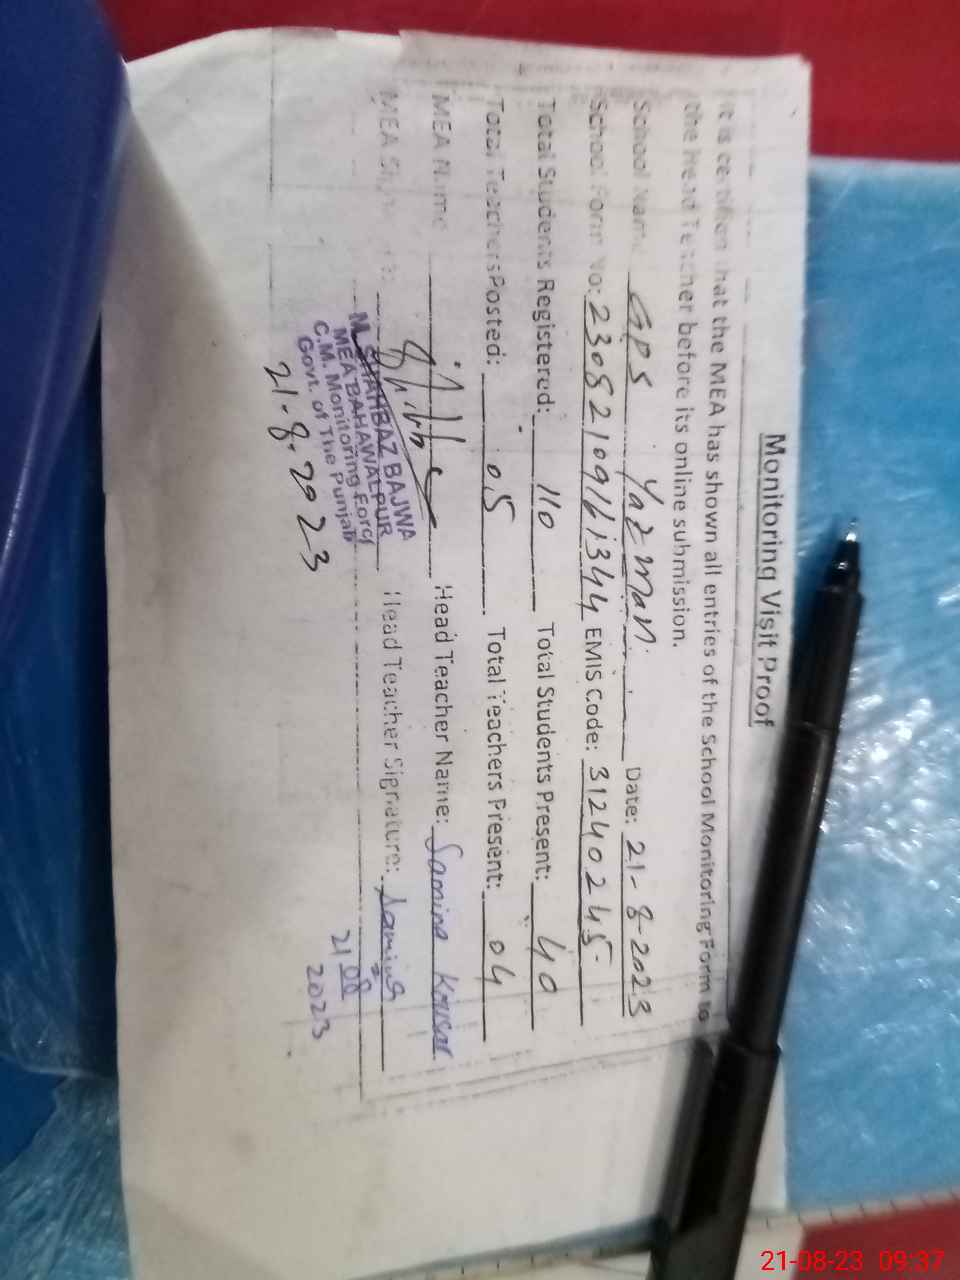 Monitoring Visit Proof
It is certified that the MEA has shown all entries of the School Monitoring Form to
the Head Teacher before its online submission.
School Name GPS Yazman. Date: 21-8-2023
School Form No: EMIS Code: 31240245
Total Students Registered: 110 Total Students Present: 40
Total Teachers Posted: 05 Total Teachers Present: 04
MEA Name Head Teacher Name: Samina Kousar
MEA Head Teacher Signature: Samina
SHAHBAZ BAJWA
MEA BAHAWALPUR
C.M. Monitoring Force
Govt. of The Punjab
21-8-2023
21 08
2023
21-08-23 09:37